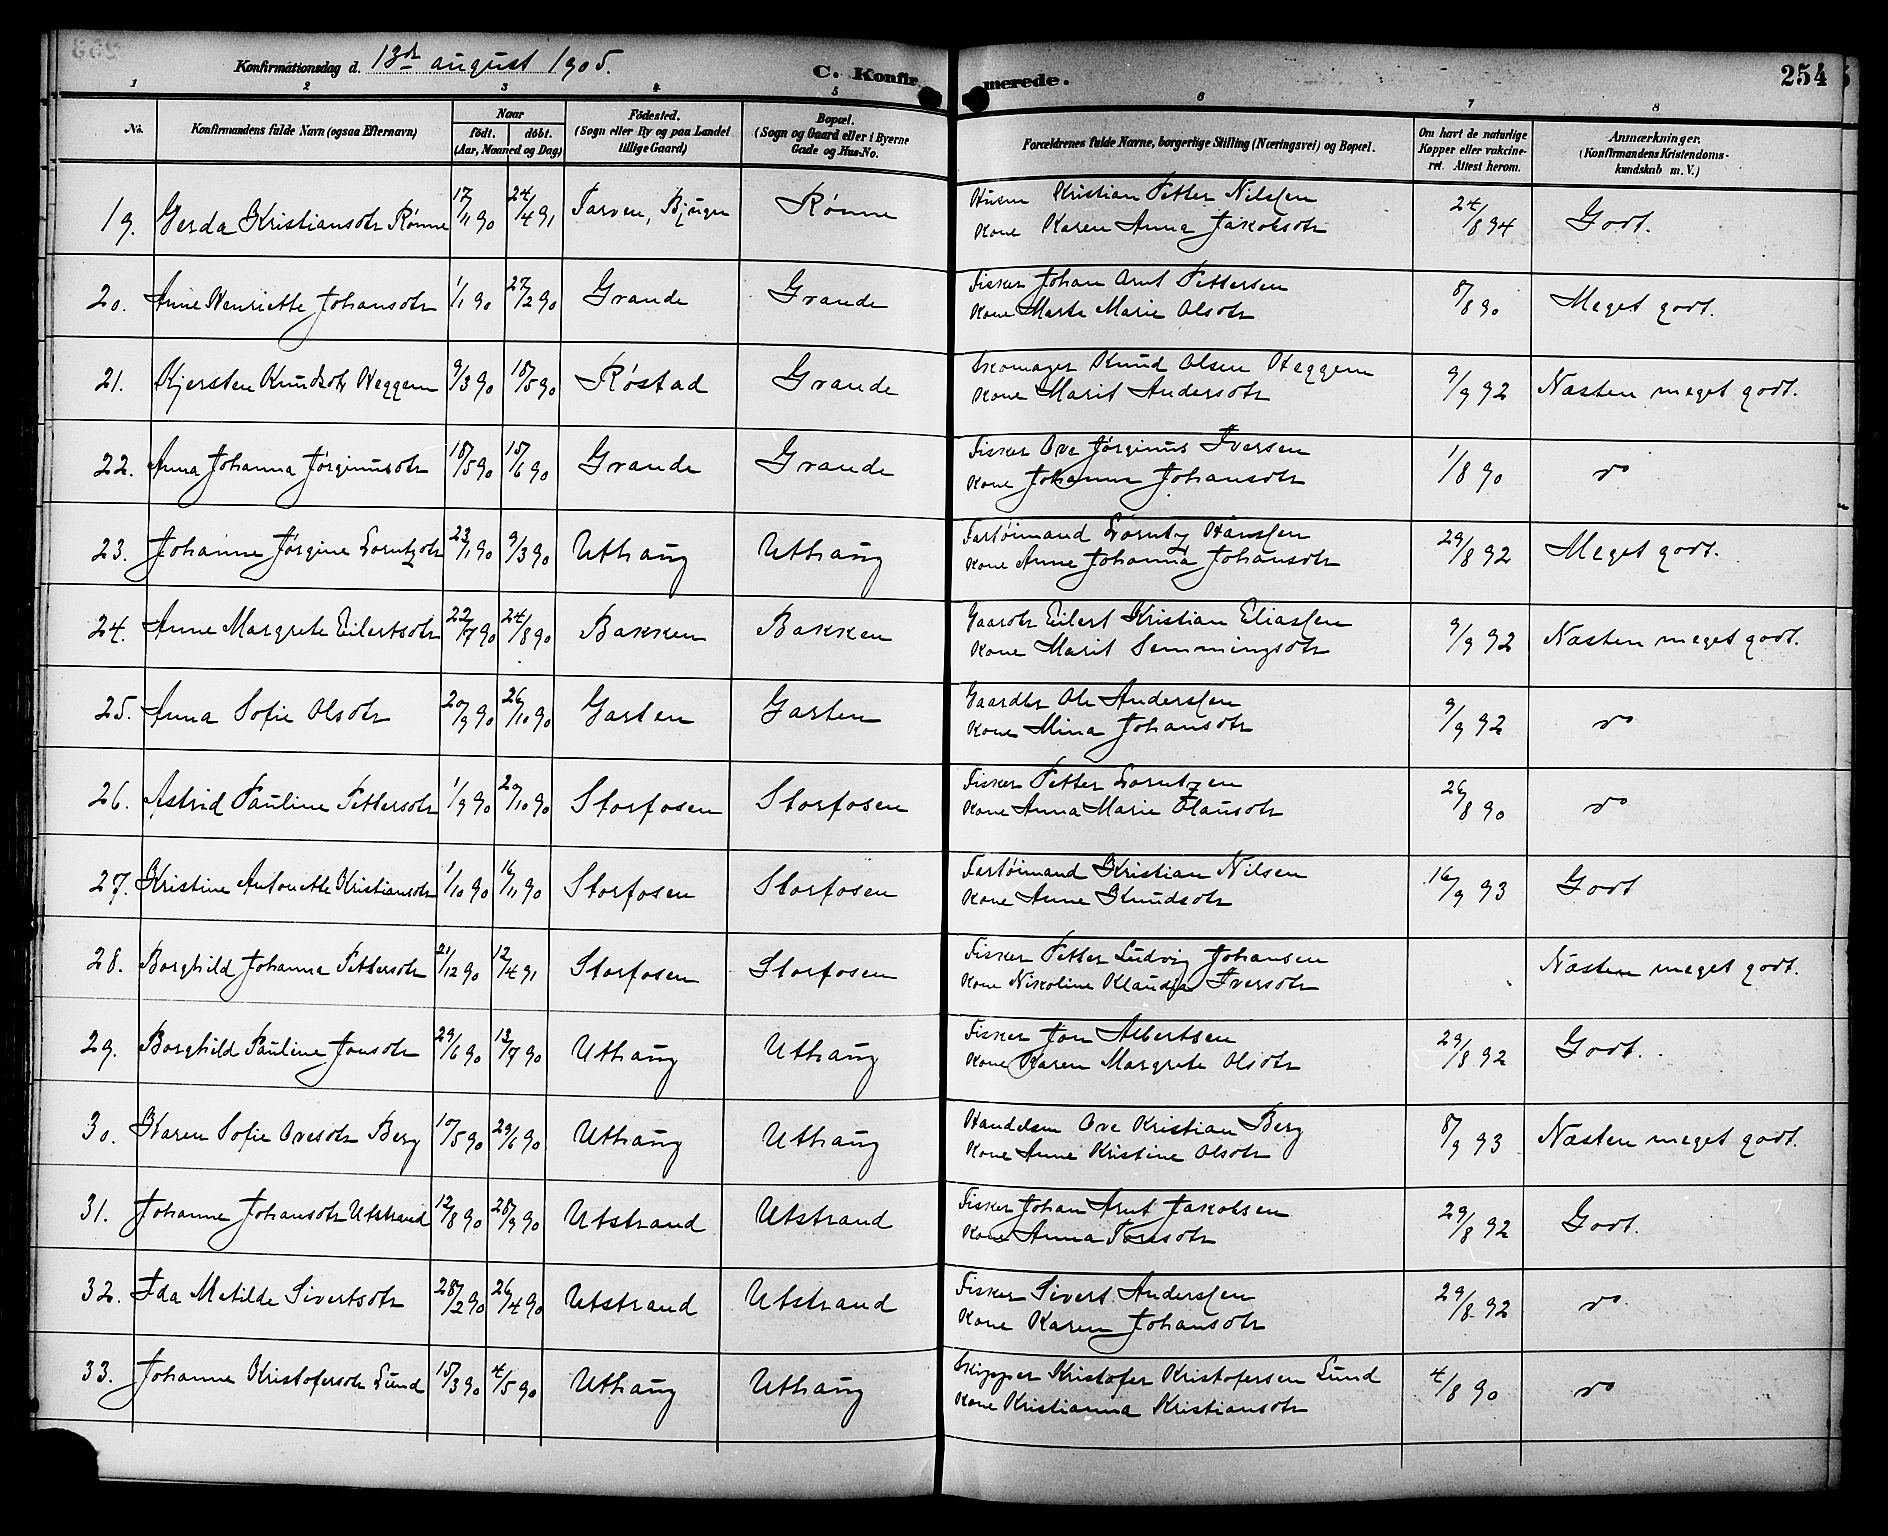 Konfirmationsdag d. 13de august 1905.
C. Konfirmerede.
254
1 2 3 4 5 6 7 8
No.
Konfirmandens fulde Navn (ogsaa Efternavn)
Naar
født. døbt.
(Aar, Maaned og Dag)
Fødested.
(Sogn eller By og paa Landet
tillige Gaard)
Bopæl.
(Sogn og Gaard eller i Byerne
Gade og Hus-No.
Forældrenes fulde Navne, borgerlige Stilling (Næringsvei) og Bopæl.
Om havt de naturlige
Kopper eller vakcine-
ret. Attest herom.
Anmærkninger.
(Konfirmandens Kristendoms-
kundskab m. V.)
19. Gerda Kristiansdtr Rønne 17/11 90 24/4 91 Tarven, Bjugn Rønne Husm Kristian Petter Nilssen 24/8 94 Godt.
Kone Karen Anna Jakobsdtr
20. Anne Henriette Johansdtr 1/1 90 27/2 90 Grande Grande Fisker Johan Arnt Pettersen 8/8 90 Meget godt.
Kone Marta Marie Olsdtr
21. Kjersten Knudsdtr Heggem 9/3 90 18/5 90 Røstad Grande Skomager Knud Olsen Heggem 9/9 92 Næsten meget godt.
Kone Marit Andersdtr
22. Anna Johanna Jørginusdtr 18/5 90 15/6 90 Grande Grande Fisker Ove Jørginus Iversen 1/8 90 do
Kone Johanna Johansdtr
23. Johanne Jørgine Lorntzdtr 23/1 90 9/3 90 Uthaug Uthaug Fartøimand Lorntz Hanssen 29/8 92 Meget godt.
Kone Anne Johanna Johansdtr
24. Anne Margrete Eilertsdtr 22/7 90 24/8 90 Bakken Bakken Gaardbr Eilert Kristian Eliassen 9/9 92 Næsten meget godt.
Kone Marit Semmingsdtr
25. Anna Sofie Olsdtr 20/9 90 26/10 90 Garten Garten Gaardbr Ole Anderssen 9/9 92 do
Kone Mina Johansdtr
26. Astrid Pauline Pettersdtr 1/9 90 20/10 90 Storfosen Storfosen Fisker Petter Lorntzen 26/8 90 do
Kone Anna Marie Olausdtr
27. Kristine Antonette Kristiansdtr 1/10 90 16/11 90 Storfosen Storfosen Fartøimand Kristian Nilsen 16/9 93 Godt
Kone Anne Knudsdtr
28. Borghild Johanna Pettersdtr 21/12 90 12/4 91 Storfosen Storfosen Fisker Petter Ludvig Johansen Næsten meget godt.
Kone Nikoline Klaudia Iversdtr
29. Borghild Pauline Jonsdtr 29/6 90 13/7 90 Uthaug Uthaug Fisker Jon Albertsen 29/8 92 Godt.
Kone Karen Margrete Olsdtr
30. Karen Sofie Ovesdtr Berg 10/5 90 29/6 90 Uthaug Uthaug Handelsm Ove Kristian Berg 8/9 93 Næsten meget godt.
Kone Anne Kristine Olsdtr
31. Johanne Johansdtr Utstrand 12/8 90 28/9 90 Utstrand Utstrand Fisker Johan Arnt Jakobsen 29/8 92 Godt.
Kone Anna
32. Ida Matilde Sivertsdtr 28/2 90 26/4 90 Utstrand Utstrand Fisker Sivert Anderssen 29/8 92 do
Kone Karen Johansdtr
33. Johanne Kristofersdtr Lund 15/3 90 4/5 90 Uthaug Uthaug Skipper Kristofer Kristofersen Lund 4/8 90 do
Kone Kristianna Kristiansdtr